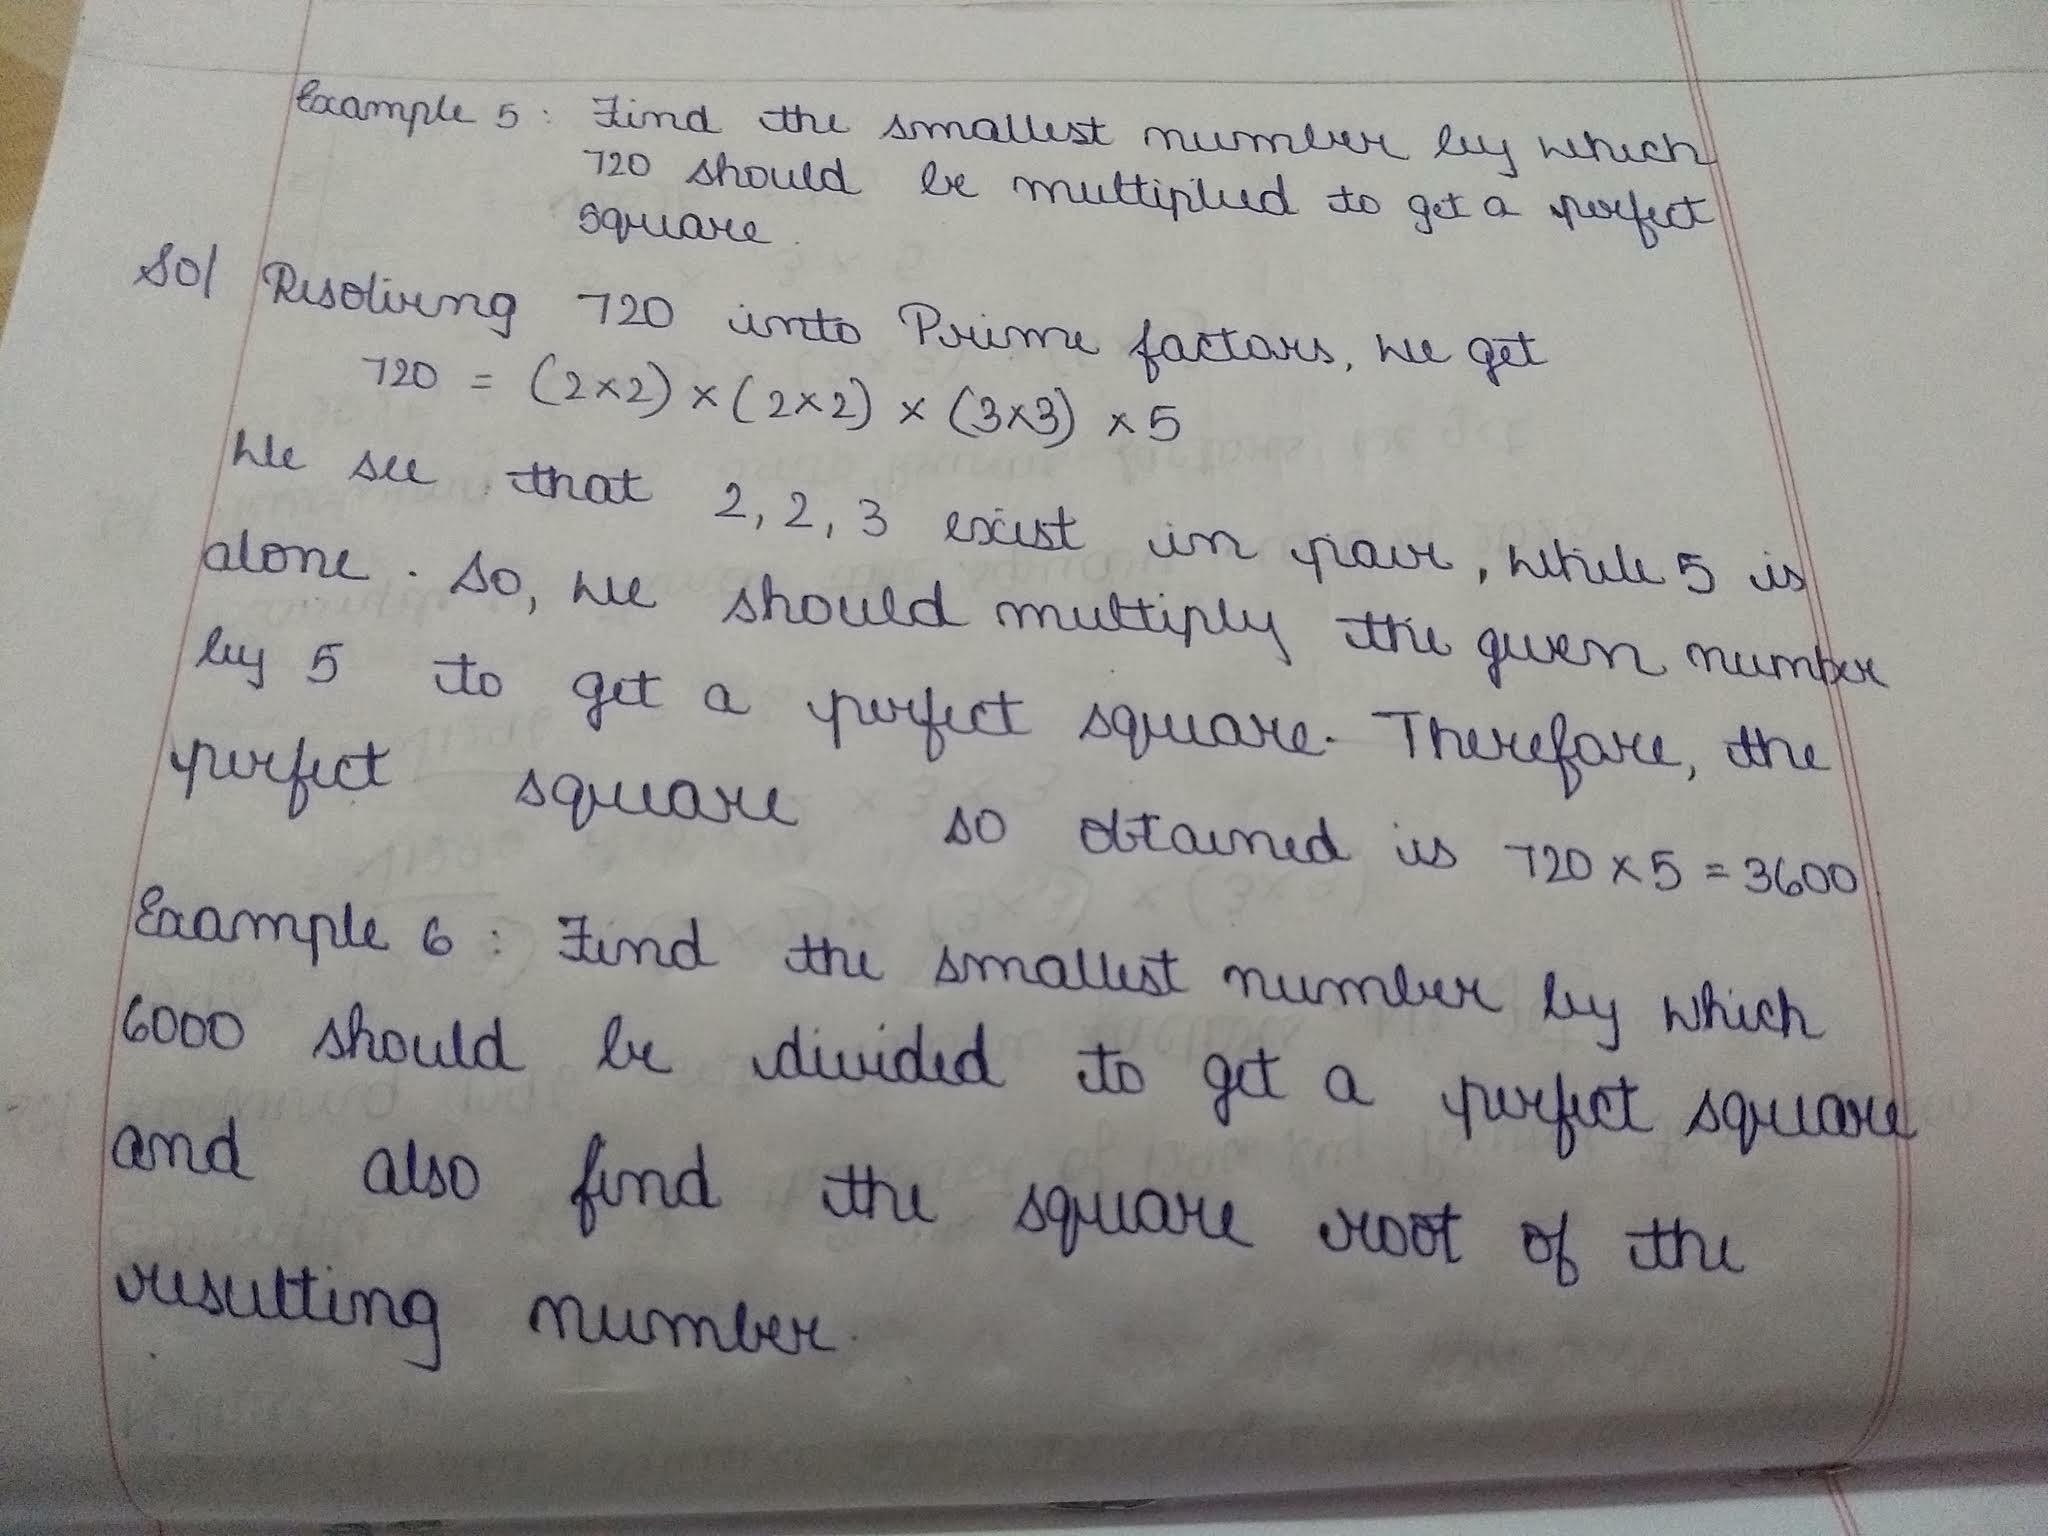 Example 5 : Find the smallest number by which
720 should be multiplied to get a perfect
square.
Sol Resolving 720 into Prime factors, we get
720 = (2×2) × (2×2) × (3×3) × 5
We see that 2, 2, 3 exist in pair, while 5 is
alone. So, we should multiply the given number
by 5 to get a perfect square. Therefore, the
perfect square so obtained is 720 × 5 = 3600
Example 6 : Find the smallest number by which
6000 should be divided to get a perfect square
and also find the square root of the
resulting number.